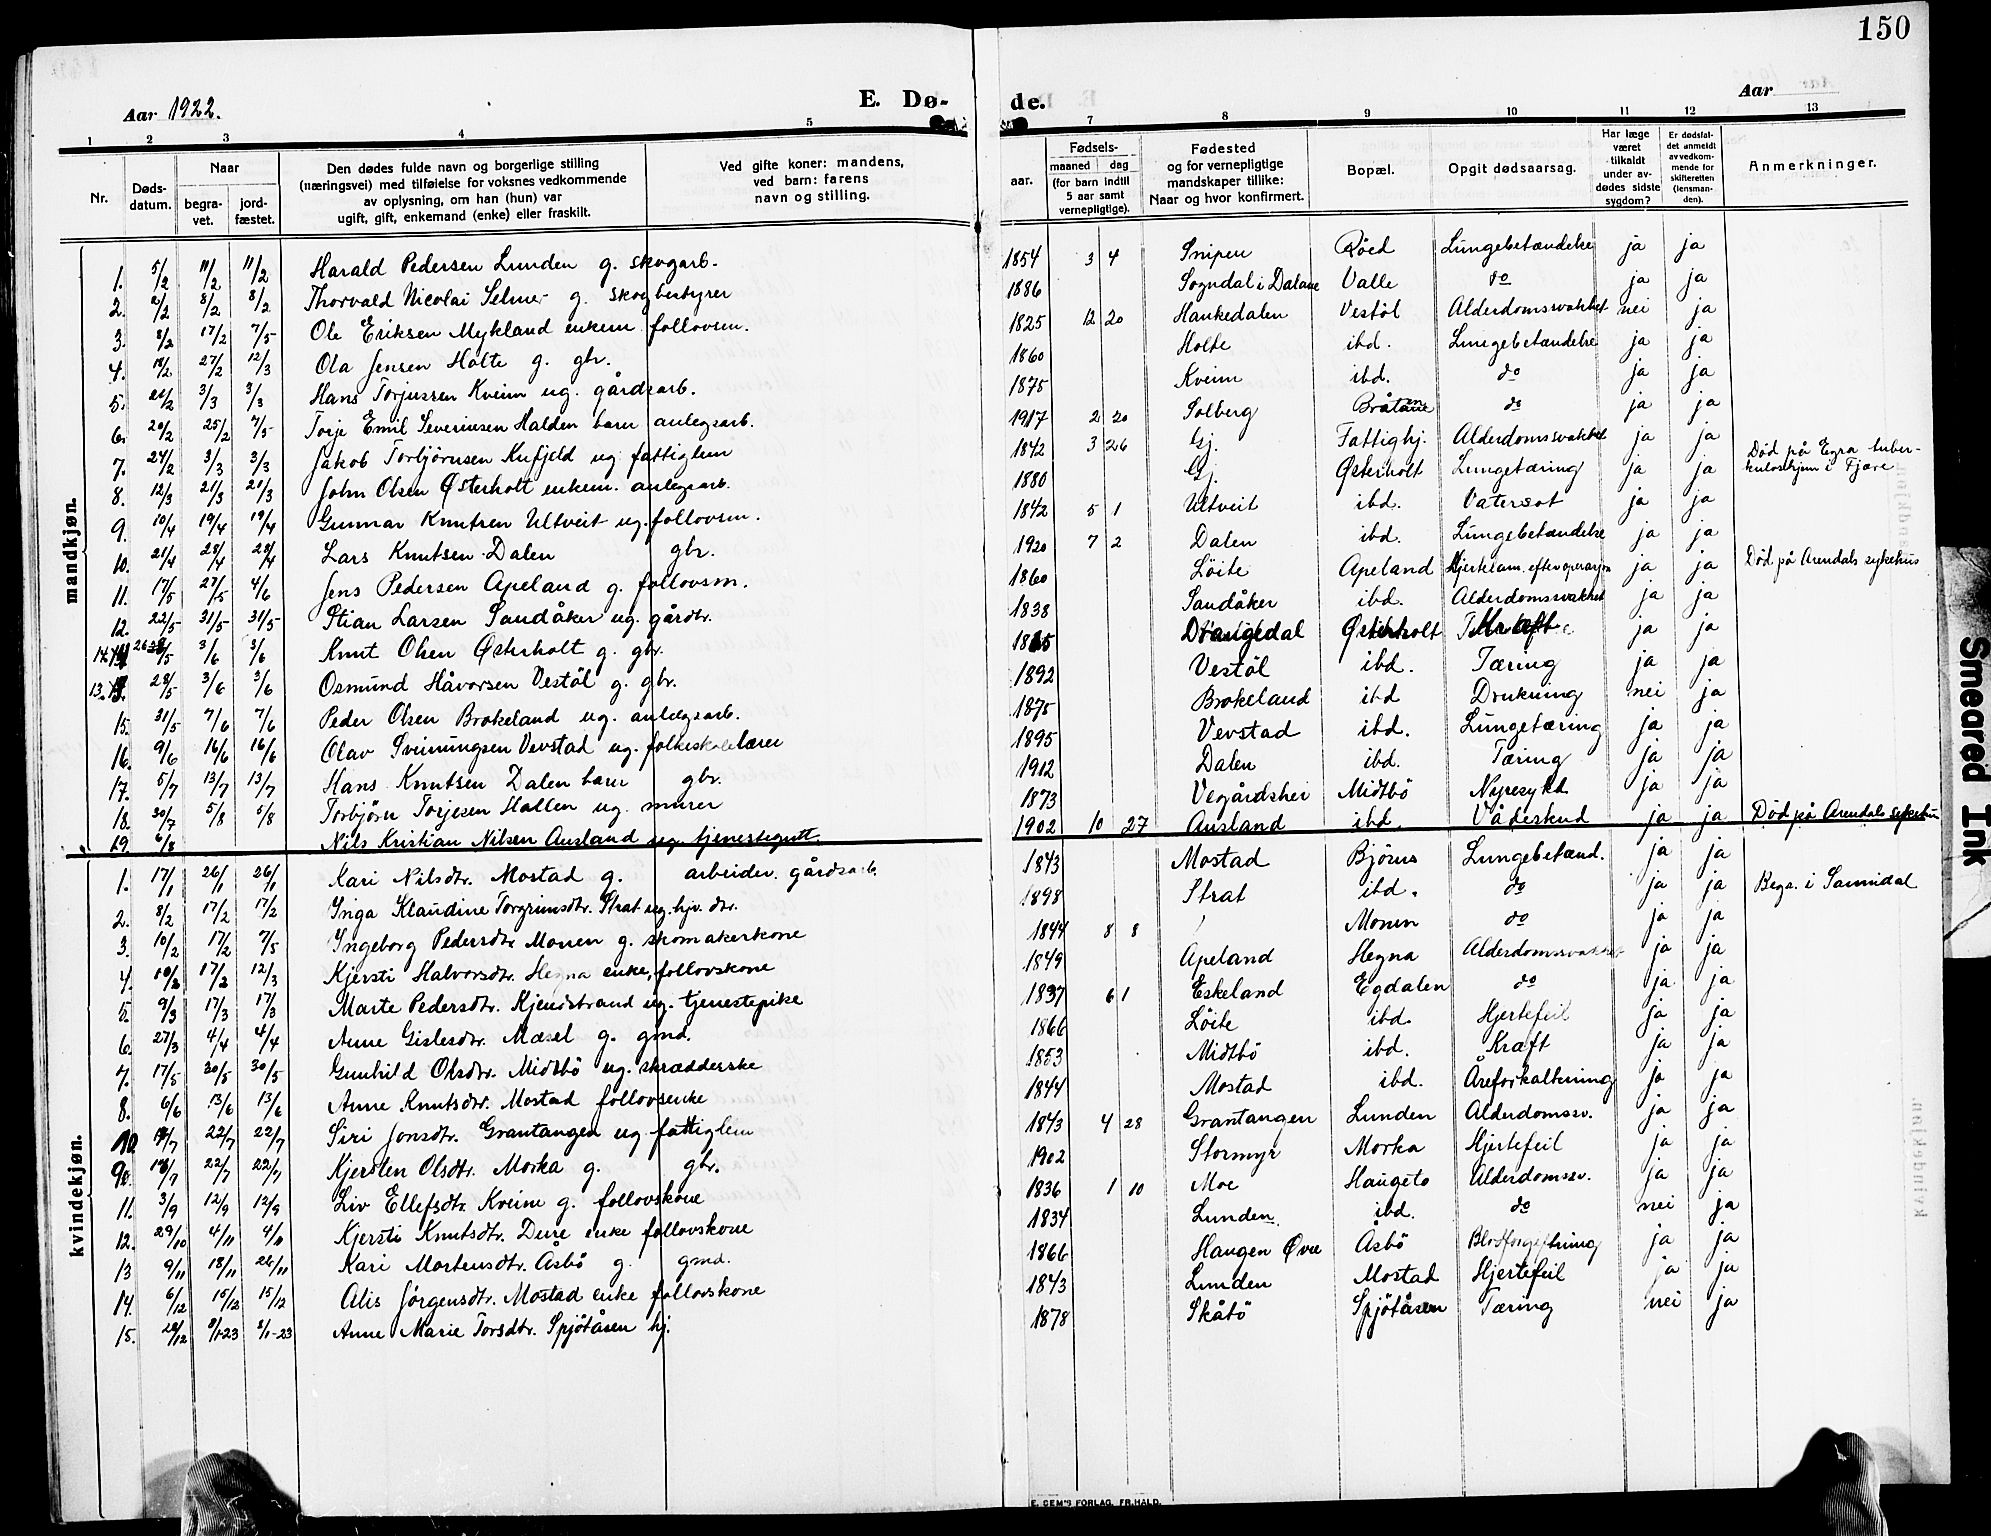 150
Aar 1922.
E. Dø-
de.
Aar
1 2 3 4 5
7 8 9 10 11 12 13
Nr.
Døds-
datum.
Naar
begra-
vet.
jord-
fæstet.
Den dødes fulde navn og borgerlige stilling
(næringsvei) med tilføielse for voksnes vedkommende
av oplysning, om han (hun) var
ugift, gift, enkemand (enke) eller fraskilt.
Ved gifte koner: mandens,
ved barn: farens
navn og stilling.
aar.
Fødsels-
maaned dag
(for barn indtil
5 aar samt
vernepligtige).
Fødested
og for vernepligtige
mandskaper tillike:
Naar og hvor konfirmert.
Bopæl.
Opgit dødsaarsag.
Har læge
været
tilkaldt
under av-
dødes sidste
sygdom?
Er dødsfal-
det anmeldt
av vedkom-
mende for
skifteretten
(lensman-
den).
Anmerkninger.
mandkjøn.
1. 5/2 11/2 11/2 Harald Pedersen Lunden g. skogarb. 1854 3 4 Snipen Røed Lungebetændelse ja ja
2. 2/2 8/2 8/2 Thorvald Nicolai Selmer g. skogbestyrer 1886 Sogndal i Dalane Valle do ja ja
3. 8/2 17/2 7/5 Ole Eriksen Mykland enkem. follovsm. 1825 12 20 Haukedalen Vestöl Alderdomssvakhet nei ja
4. 18/2 27/2 12/3 Ola Jensen Holte g. gbr. 1860 Holte ibd. Lungebetændelse ja ja
5. 21/2 3/3 3/3 Hans Torjussen Kveim ug. gårdsarb. 1875 Kveim ibd. do ja ja
6. 20/2 25/2 7/5 Torje Emil Severinsen Halden barn anlegsarb. 1917 2 20 Solberg Bråtane do ja ja
7. 24/2 3/3 3/3 Jakob Torbjörnsen Kufjeld ug. fattiglem 1842 3 26 Gj. Fattighj. Alderdomssvakhet ja ja
8. 12/3 21/3 21/3 John Olsen Østerholt enkem. anlegsarb. 1880 Gj. Østerholt Lungetæring ja ja Død på Egra tuber-
kuloshjem i Fjære
9. 10/4 19/4 19/4 Gunnar Knutsen Ultveit ug. follovsm. 1842 5 1 Ultveit ibd. Vatersot ja ja
10. 21/4 28/4 28/4 Lars Knutsen Dalen gbr. 1920 7 2 Dalen ibd. Lungebetændelse ja ja
11. 17/5 27/5 4/6 Jens Pedersen Apeland g. follovsm. 1860 Löite Apeland Hjertelam. efter operasjon ja ja Død på Arendals sykehus
12. 22/5 31/5 31/5 Stian Larsen Sandåker ug. gårdbr. 1838 Sandåker ibd. Alderdomssvakhet ja ja
14. 26/5 3/6 3/6 Knut Olsen Østerholt g. gbr. Drangedal Østerholt Kræft ja ja
13. 28/5 3/6 3/6 Osmund Håvorsen Vestöl g. gbr. 1892 Vestöl ibd. Tæring ja ja
15. 31/5 7/6 7/6 Peder Olsen Brokeland ug. anlegsarb. 1875 Brokeland ibd Drukning nei ja
16. 9/6 16/6 16/6 Olav Sveinungsen Vevstad ug. folkeskolelærer 1895 Vevstad ibd. Lungetæring ja ja
17. 5/7 13/7 13/7 Hans Knutsen Dalen barn gbr. 1912 Dalen ibd. Tæring ja ja
18. 30/7 5/8 5/8 Torbjörn Torjesen Hallen ug. murer 1873 Vegårdshei Midtbö Nyresykd ja ja
19. 6/8 Nils Kristian Nilsen Ausland ug. tjenestegutt. 1902 10 27 Ausland ibd. Vådeskud ja ja Død på Arendals sykehus
kvindekjøn.
1. 17/1 26/1 26/1 Kari Nilsdtr. Mostad g. arbeider. gårdsarb. 1843 Mostad Björus Lungebetænd. ja ja
2. 8/2 17/2 17/2 Inga Klaudine Torgrimsdtr. Strat ug. hjv. dtr. 1898 Strat ibd. do ja ja Begr. i Sannidal
3. 10/2 17/2 7/5 Ingeborg Pedersdtr Monen g. skomakerkone 1844 8 8 Monen do ja ja
4. 10/2 17/2 12/3 Kjersti Halvorsdtr. Hegna enke, follovskone 1849 Apeland Hegna Alderdomssvakhet ja ja
5. 9/3 17/3 17/3 Marte Pedersdtr. Kjendstrand ug. tjenestepike 1837 6 1 Eskeland Egdalen do ja ja
6. 27/3 4/4 4/4 Anne Gislesdtr. Mæsel g. gmd. 1866 Löite ibd. Hjertefeil ja ja
7. 17/5 30/5 30/5 Gunhild Olsdtr. Midtbö ug. skrædderske 1853 Midtbö ibd. Kræft ja ja
8. 6/6 13/6 13/6 Anne Knutsdtr. Mostad follovsenke 1844 Mostad ibd. Åreforkalkning ja ja
10. 22/7 22/7 Siri Jonsdtr. Grantangen ug fattiglem 1843 4 28 Grantangen Lunden Alderdomssv. ja ja
9. 22/7 22/7 Kjersten Olsdtr. Morka g. gbr. 1902 Stormyr Morka Hjertefeil ja ja
11. 3/9 12/9 12/9 Liv Ellefsdtr Kveim g. follovskone 1836 1 10 Moe Haugeto Alderdomssv. ja ja
12. 29/10 4/11 4/11 Kjersti Knutsdtr. Deire enke follovskone 1834 Lunden ibd. do nei ja
13 9/11 18/11 26/11 Kari Mortensdtr. Åsbö g. gmd. 1866 Haugen Övre Åsbö Blodforgiftning ja ja
14. 6/12 15/12 15/12 Alis Jörgensdtr. Mostad enke follovskone 1843 Lunden Mostad Hjertefeil ja ja
15. 28/12 8/1-23 8/1-23 Anne Marie Torsdtr. Spjötåsen hj. 1878 Skåtö Spjötåsen Tæring nei ja
E. SEM'S FORLAG, FR.HALD.
Smeared Ink